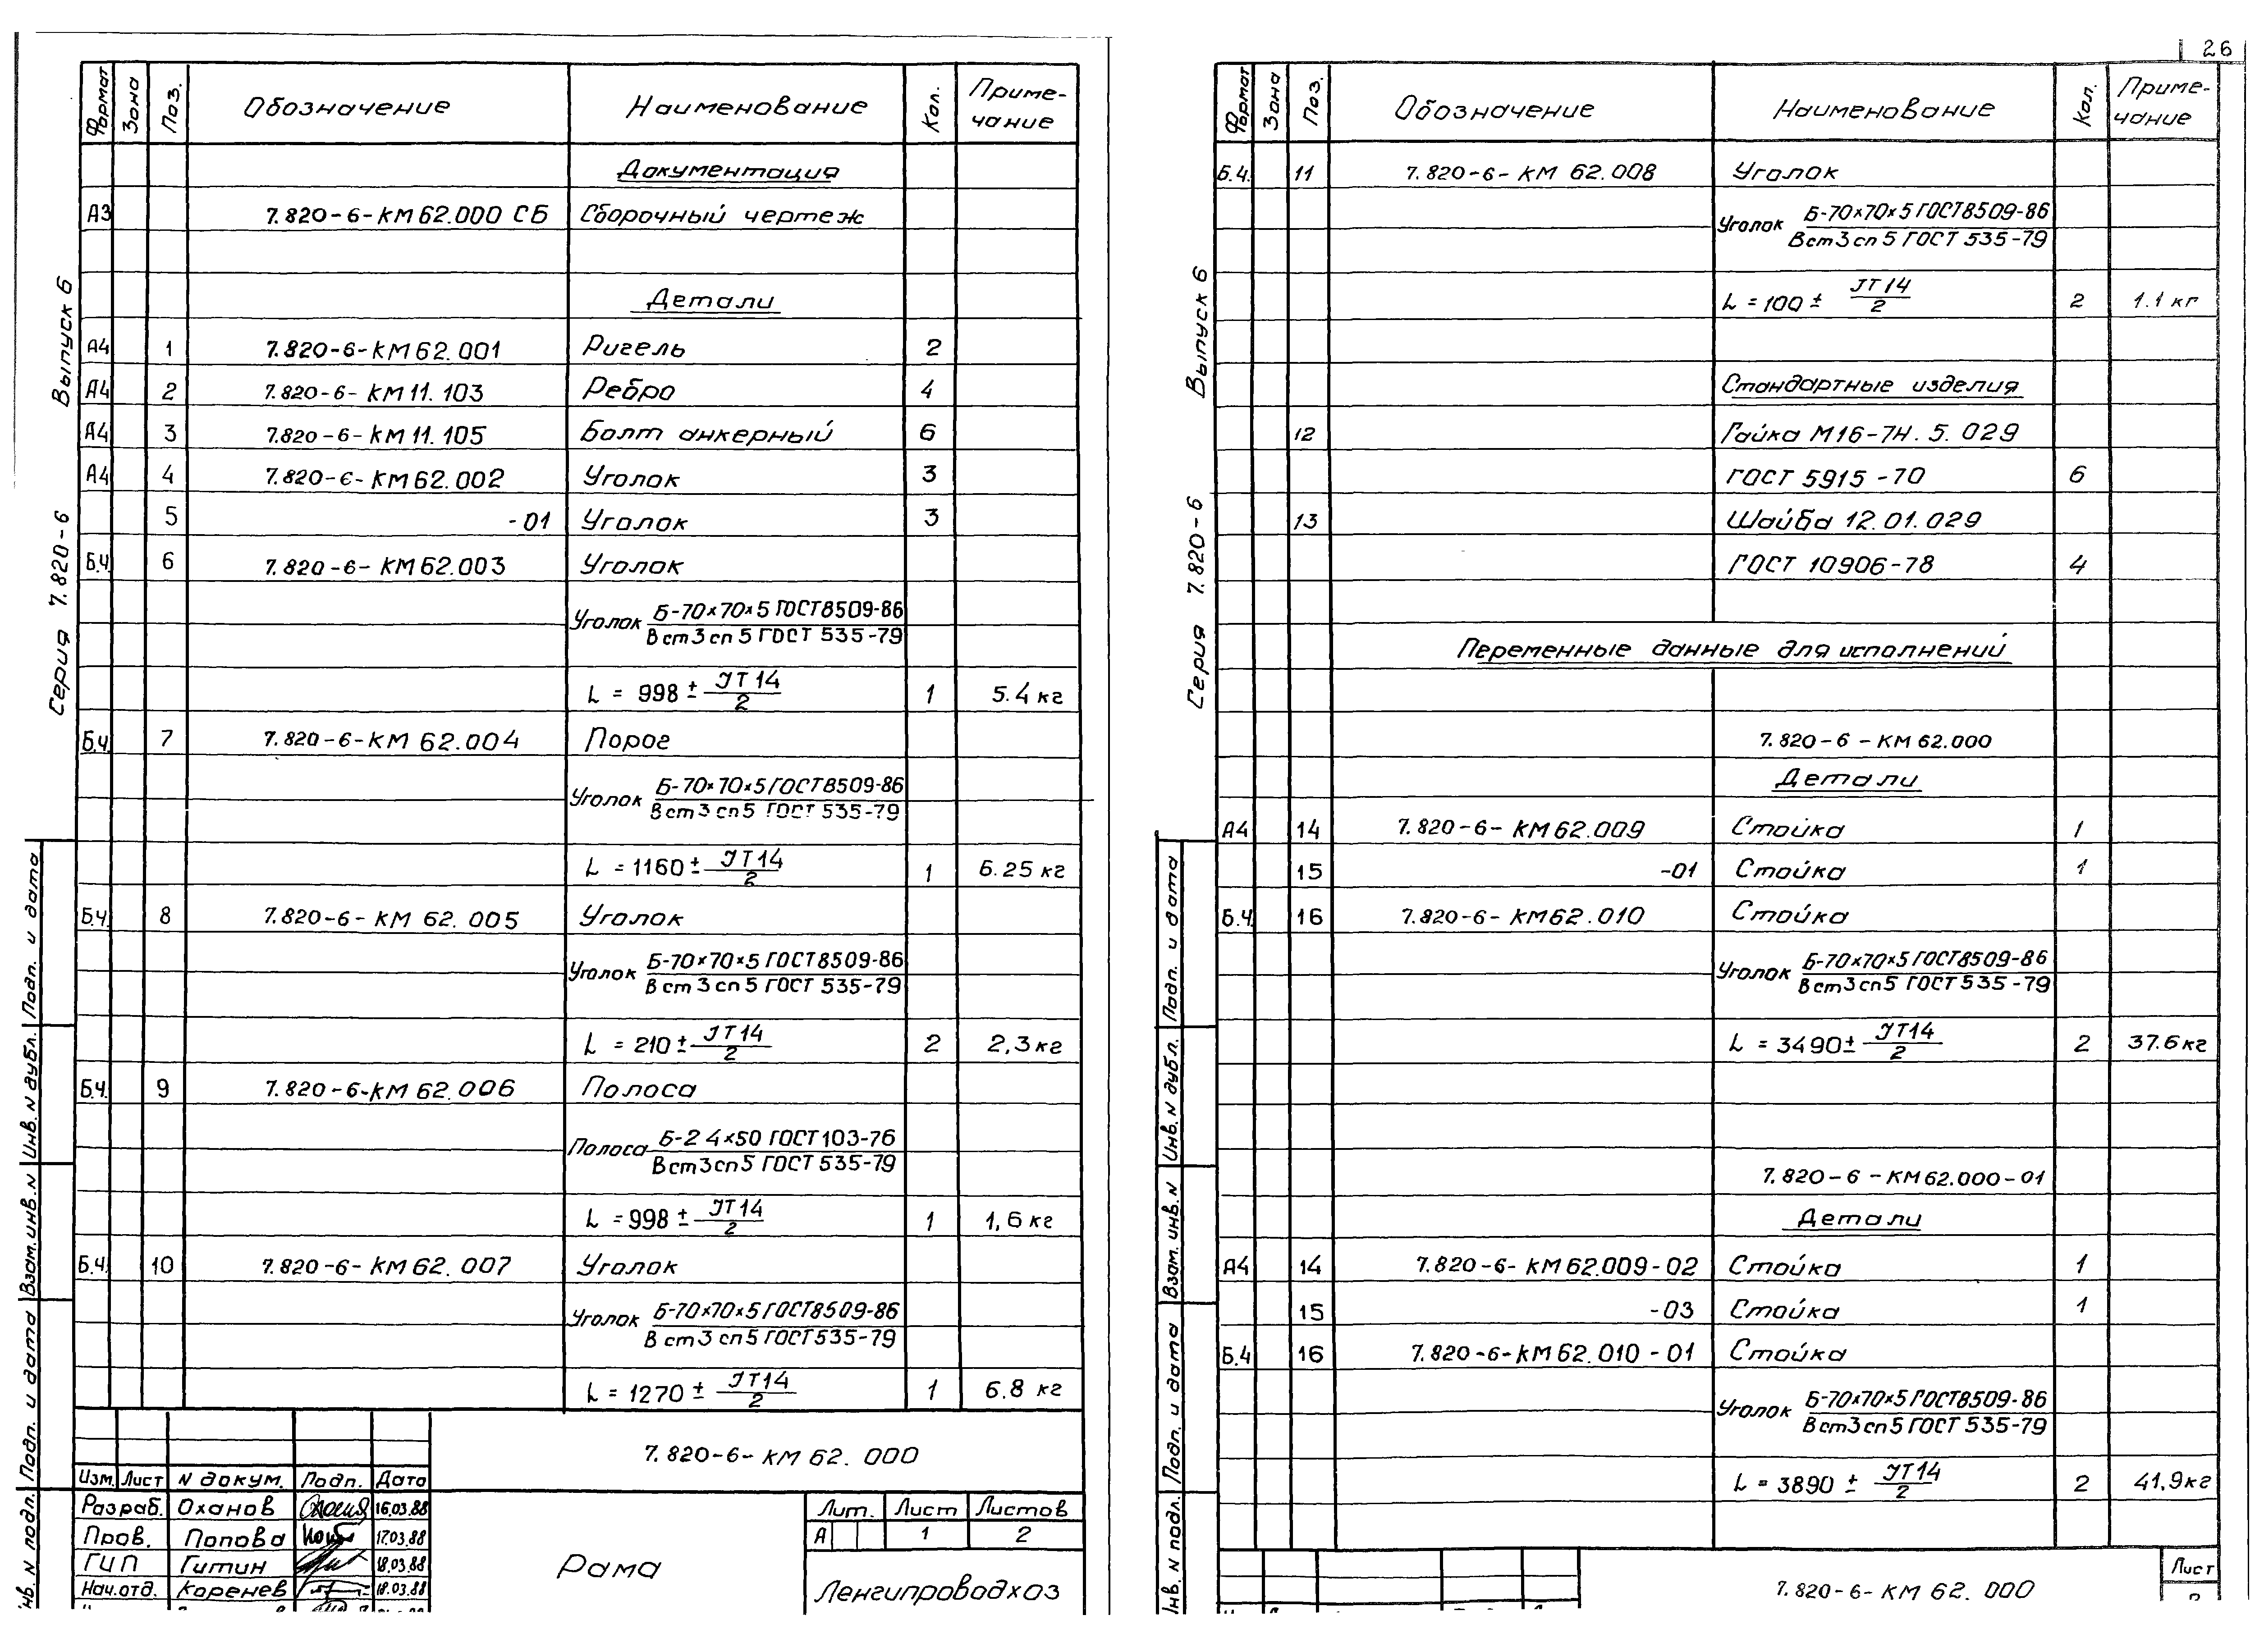 Формат Зона Поз. Обозначение Наименование Кол. Приме-
чание
Документация
А3 7.820-6-КМ62.000 СБ Сборочный чертеж
Детали
А4 1 7.820-6-КМ62.001 Ригель 2
А4 2 7.820-6-КМ11.103 Ребро 4
А4 3 7.820-6-КМ11.105 Болт анкерный 6
А4 4 7.820-6-КМ62.002 Уголок 3
5 -01 Уголок 3
Б.Ч. 6 7.820-6-КМ62.003 Уголок
Уголок Б-70×70×5 ГОСТ8509-86
Вст3сп5 ГОСТ 535-79
L = 998 ± JT14/2 1 5.4 кг
Б.Ч. 7 7.820-6-КМ 62.004 Порог
Уголок Б-70×70×5 ГОСТ8509-86
Вст3сп5 ГОСТ 535-79
L = 1160 ± JT14/2 1 6.25 кг
Б.Ч. 8 7.820-6-КМ 62.005 Уголок
Уголок Б-70×70×5 ГОСТ8509-86
Вст3сп5 ГОСТ 535-79
L = 210 ± JT14/2 2 2,3 кг
Б.Ч. 9 7.820-6-КМ 62.006 Полоса
Полоса Б-2 4×50 ГОСТ103-76
Вст3сп5 ГОСТ 535-79
L = 998 ± JT14/2 1 1,6 кг
Б.Ч. 10 7.820-6-КМ62.007 Уголок
Уголок Б-70×70×5 ГОСТ8509-86
Вст3сп5 ГОСТ535-79
L = 1270 ± JT14/2 1 6.8 кг
7.820-6-КМ 62.000
Изм. Лист N докум. Подп. Дата
Разраб. Оханов 16.03.88
Пров. Попова 17.03.88
ГИП Гитин 18.03.88
Нач.отд. Коренев 18.03.88
Рама
Лит. Лист Листов
А 1 2
Ленгипроводхоз
Серия 7.820-6 Выпуск 6
Подп. и дата
Инв. N дубл.
Взам. инв. N
Подп. и дата
Инв. N подл.
26
Формат Зона Поз. Обозначение Наименование Кол. Приме-
чание
Б.4. 11 7.820-6-КМ 62.008 Уголок
Уголок Б-70×70×5 ГОСТ8509-86
Вст3сп5 ГОСТ 535-79
L = 100 ± JT14/2 2 1.1 кг
Стандартные изделия
12 Гайка М16-7Н.5.029
ГОСТ 5915-70 6
13 Шайба 12.01.029
ГОСТ 10906-78 4
Переменные данные для исполнений
7.820-6-КМ62.000
Детали
А4 14 7.820-6-КМ62.009 Стойка 1
15 -01 Стойка 1
Б.Ч. 16 7.820-6-КМ62.010 Стойка
Уголок Б-70×70×5 ГОСТ8509-86
Вст3сп5 ГОСТ 535-79
L = 3490 ± JT14/2 2 37.6 кг
7.820-6-КМ62.000-01
Детали
А4 14 7.820-6-КМ62.009-02 Стойка 1
15 -03 Стойка 1
Б.4 16 7.820-6-КМ62.010-01 Стойка
Уголок Б-70×70×5 ГОСТ8509-86
Вст3сп5 ГОСТ 535-79
L = 3890 ± JT14/2 2 41,9 кг
7.820-6-КМ 62.000
Лист
Серия 7.820-6 Выпуск 6
Подп. и дата
Инв. N дубл.
Взам. инв. N
Подп. и дата
Инв. N подл.